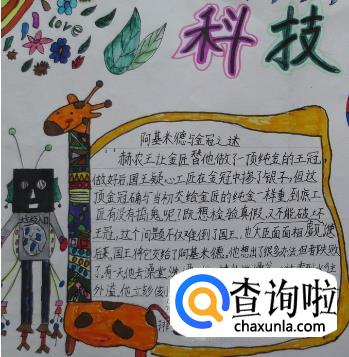 love
科技
阿基米德与金冠之迷
赫农王让金匠替他做了一顶纯金的王冠,
做好后,国王疑心工匠在金冠中掺了银子,但这
顶金冠确与当初交给金匠的纯金一样重,到底工
匠有没有捣鬼呢?既想检验真假,又不能破坏
王冠,这个问题不仅难倒了国王,也大臣面面相觑,
后来,国王将它交给了阿基米德。他想出了很多办法,但都失败
了,有一天,他去澡堂洗
外溢,他立刻
查询啦
chaxunla.com